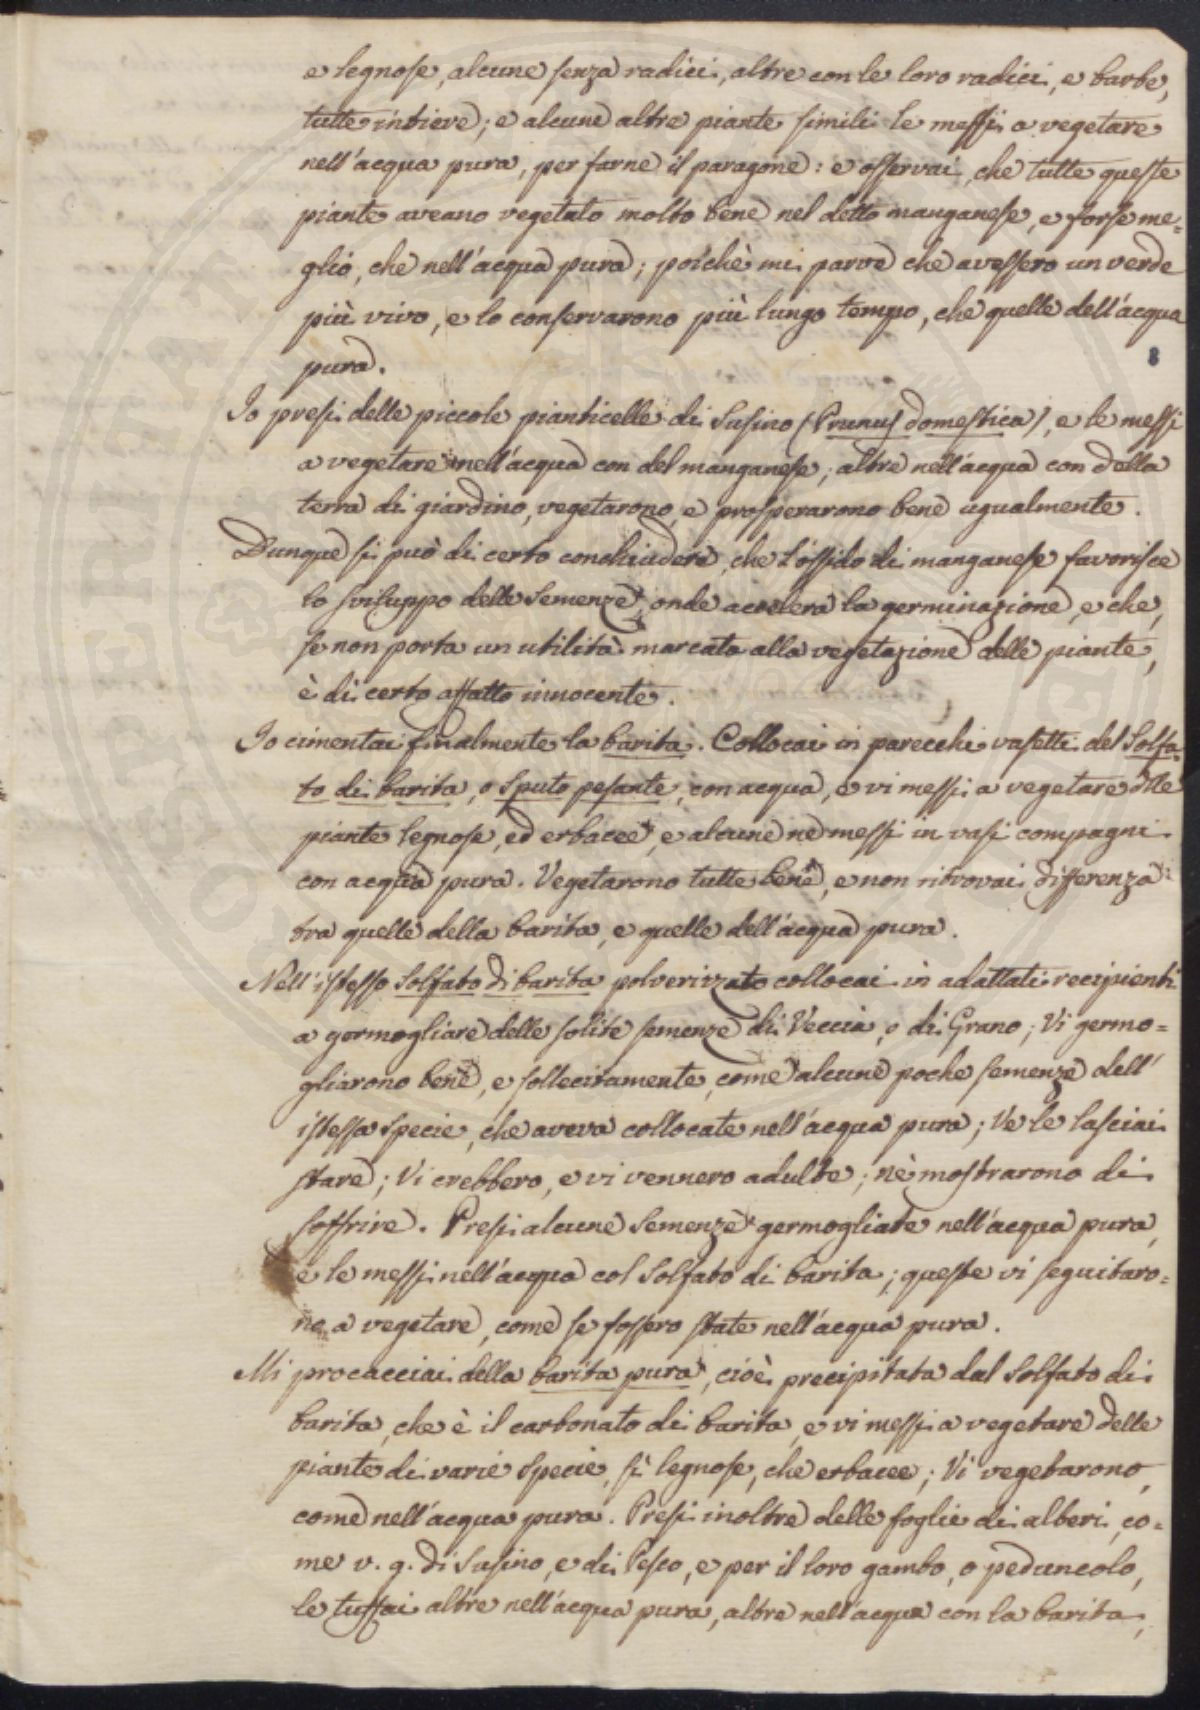 e legnose, alcune senza radici, altre con le loro radici, e barbe,
tutte intiere; e alcune altre piante simili le messi a vegetare
nell'acqua pura, per farne il paragone: e osservai, che tutte queste
piante aveano vegetato molto bene nel detto manganese, e forse me=
glio, che nell'acqua pura; poichè mi parve che avessero un verde
più vivo, e lo conservarono più lungo tempo, che quelle dell'acqua
pura.
8
Io presi delle piccole pianticelle di Susino (Prunus domestica), e le messi
a vegetare nell'acqua con del manganese; altre nell'acqua con della
terra di giardino, vegetarono, e prosperarono bene ugualmente.
Dunque si può di certo conchiudere, che l'ossido di manganese favorisce
lo sviluppo delle semenze, onde accelera la germinazione, e che,
se non porta un utilità marcata alla vegetazione delle piante,
è di certo affatto innocente.
Io cimentai finalmente la barita. Collocai in parecchi vasetti del Solfa=
to di barita, o Sputo pesante, con acqua, e vi messi a vegetare delle
piante legnose, ed erbacee, e alcune ne messi in vasi compagni
con acqua pura. Vegetarono tutte bene, e non ritrovai differenza
tra quelle della barita, e quelle dell'acqua pura.
Nell'istesso solfato di barita polverizzato collocai in adattati recipienti
a germogliare delle solite semenze di Veccia, e di Grano; Vi germo=
gliarono bene, e sollecitamente, come alcune poche semenze dell'
istessa specie, che aveva collocate nell'acqua pura; Ve le lasciai
stare; Vi crebbero, e vi vennero adulte; nè mostrarono di
soffrire. Presi alcune semenze germogliate nell'acqua pura,
e le messi nell'acqua col Solfato di barita; queste vi seguitaro=
no a vegetare, come se fossero state nell'acqua pura.
Mi procacciai della barita pura, cioè precipitata dal Solfato di
barita, che è il carbonato di barita, e vi messi a vegetare delle
piante di varie specie, sì legnose, che erbacee; Vi vegetarono,
come nell'acqua pura. Presi inoltre delle foglie di alberi, co=
me v. g. di Susino, e di Pesco, e per il loro gambo, o peduncolo,
le tuffai altre nell'acqua pura, altre nell'acqua con la barita,